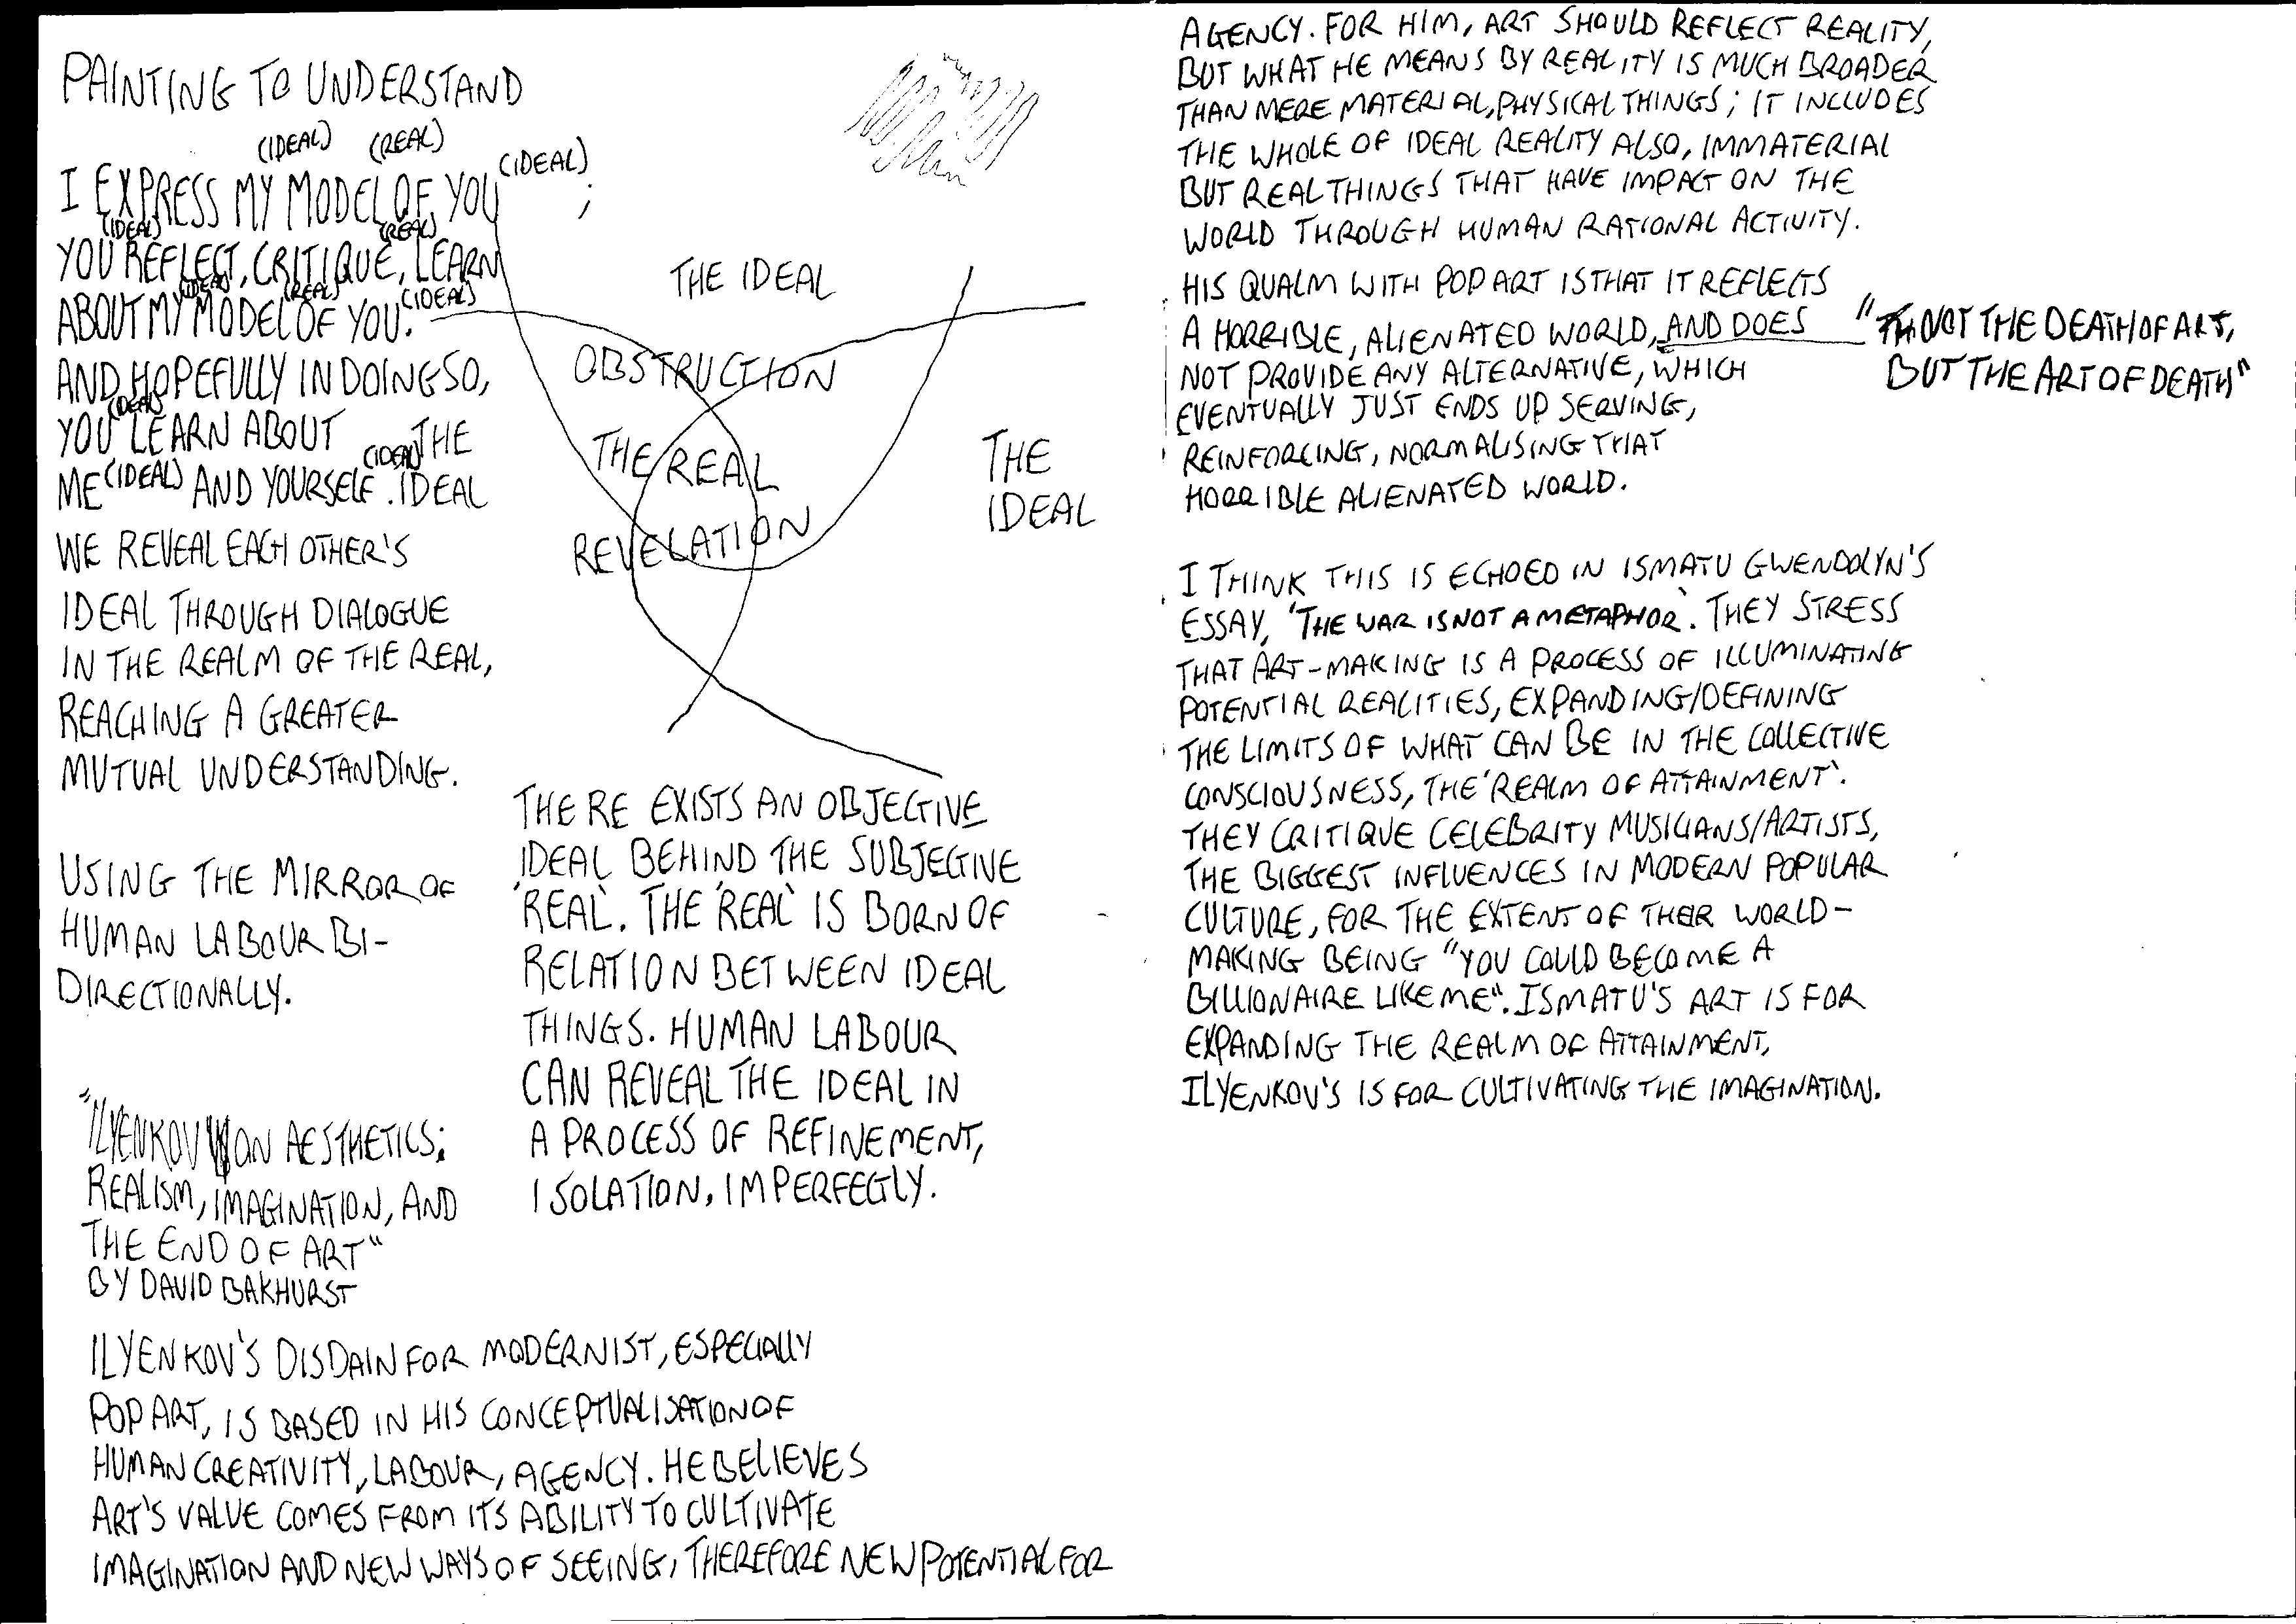 PAINTING TO UNDERSTAND
(IDEAL) (REAL) (IDEAL)
I EXPRESS MY MODEL OF YOU ;
(IDEAL) (REAL)
YOU REFLECT, CRITIQUE, LEARN
(IDEAL) (REAL) (IDEAL)
ABOUT MY MODEL OF YOU.
AND HOPEFULLY IN DOING SO,
(IDEAL)
YOU LEARN ABOUT THE
ME (IDEAL) AND YOURSELF (IDEAL). IDEAL
WE REVEAL EACH OTHER'S
IDEAL THROUGH DIALOGUE
IN THE REALM OF THE REAL,
REACHING A GREATER
MUTUAL UNDERSTANDING.
USING THE MIRROR OF
HUMAN LABOUR BI-
DIRECTIONALLY.
THE IDEAL
OBSTRUCTION
THE REAL
REVELATION
THE
IDEAL
THERE EXISTS AN OBJECTIVE
IDEAL BEHIND THE SUBJECTIVE
'REAL'. THE 'REAL' IS BORN OF
RELATION BETWEEN IDEAL
THINGS. HUMAN LABOUR
CAN REVEAL THE IDEAL IN
A PROCESS OF REFINEMENT,
ISOLATION, IMPERFECTLY.
"ILYENKOV ON AESTHETICS:
REALISM, IMAGINATION, AND
THE END OF ART"
BY DAVID BAKHURST
ILYENKOV'S DISDAIN FOR MODERNIST, ESPECIALLY
POP ART, IS BASED IN HIS CONCEPTUALISATION OF
HUMAN CREATIVITY, LABOUR, AGENCY. HE BELIEVES
ART'S VALUE COMES FROM ITS ABILITY TO CULTIVATE
IMAGINATION AND NEW WAYS OF SEEING, THEREFORE NEW POTENTIAL FOR
AGENCY. FOR HIM, ART SHOULD REFLECT REALITY,
BUT WHAT HE MEANS BY REALITY IS MUCH BROADER
THAN MERE MATERIAL, PHYSICAL THINGS; IT INCLUDES
THE WHOLE OF IDEAL REALITY ALSO, IMMATERIAL
BUT REAL THINGS THAT HAVE IMPACT ON THE
WORLD THROUGH HUMAN RATIONAL ACTIVITY.
HIS QUALM WITH POP ART IS THAT IT REFLECTS
A HORRIBLE, ALIENATED WORLD, AND DOES
NOT PROVIDE ANY ALTERNATIVE, WHICH
EVENTUALLY JUST ENDS UP SERVING,
REINFORCING, NORMALISING THAT
HORRIBLE ALIENATED WORLD.
"NOT THE DEATH OF ART,
BUT THE ART OF DEATH"
I THINK THIS IS ECHOED IN ISMATU GWENDOLYN'S
ESSAY, 'THE WAR IS NOT A METAPHOR'. THEY STRESS
THAT ART-MAKING IS A PROCESS OF ILLUMINATING
POTENTIAL REALITIES, EXPANDING/DEFINING
THE LIMITS OF WHAT CAN BE IN THE COLLECTIVE
CONSCIOUSNESS, THE 'REALM OF ATTAINMENT'.
THEY CRITIQUE CELEBRITY MUSICIANS/ARTISTS,
THE BIGGEST INFLUENCES IN MODERN POPULAR
CULTURE, FOR THE EXTENT OF THEIR WORLD-
MAKING BEING "YOU COULD BECOME A
BILLIONAIRE LIKE ME". ISMATU'S ART IS FOR
EXPANDING THE REALM OF ATTAINMENT,
ILYENKOV'S IS FOR CULTIVATING THE IMAGINATION.